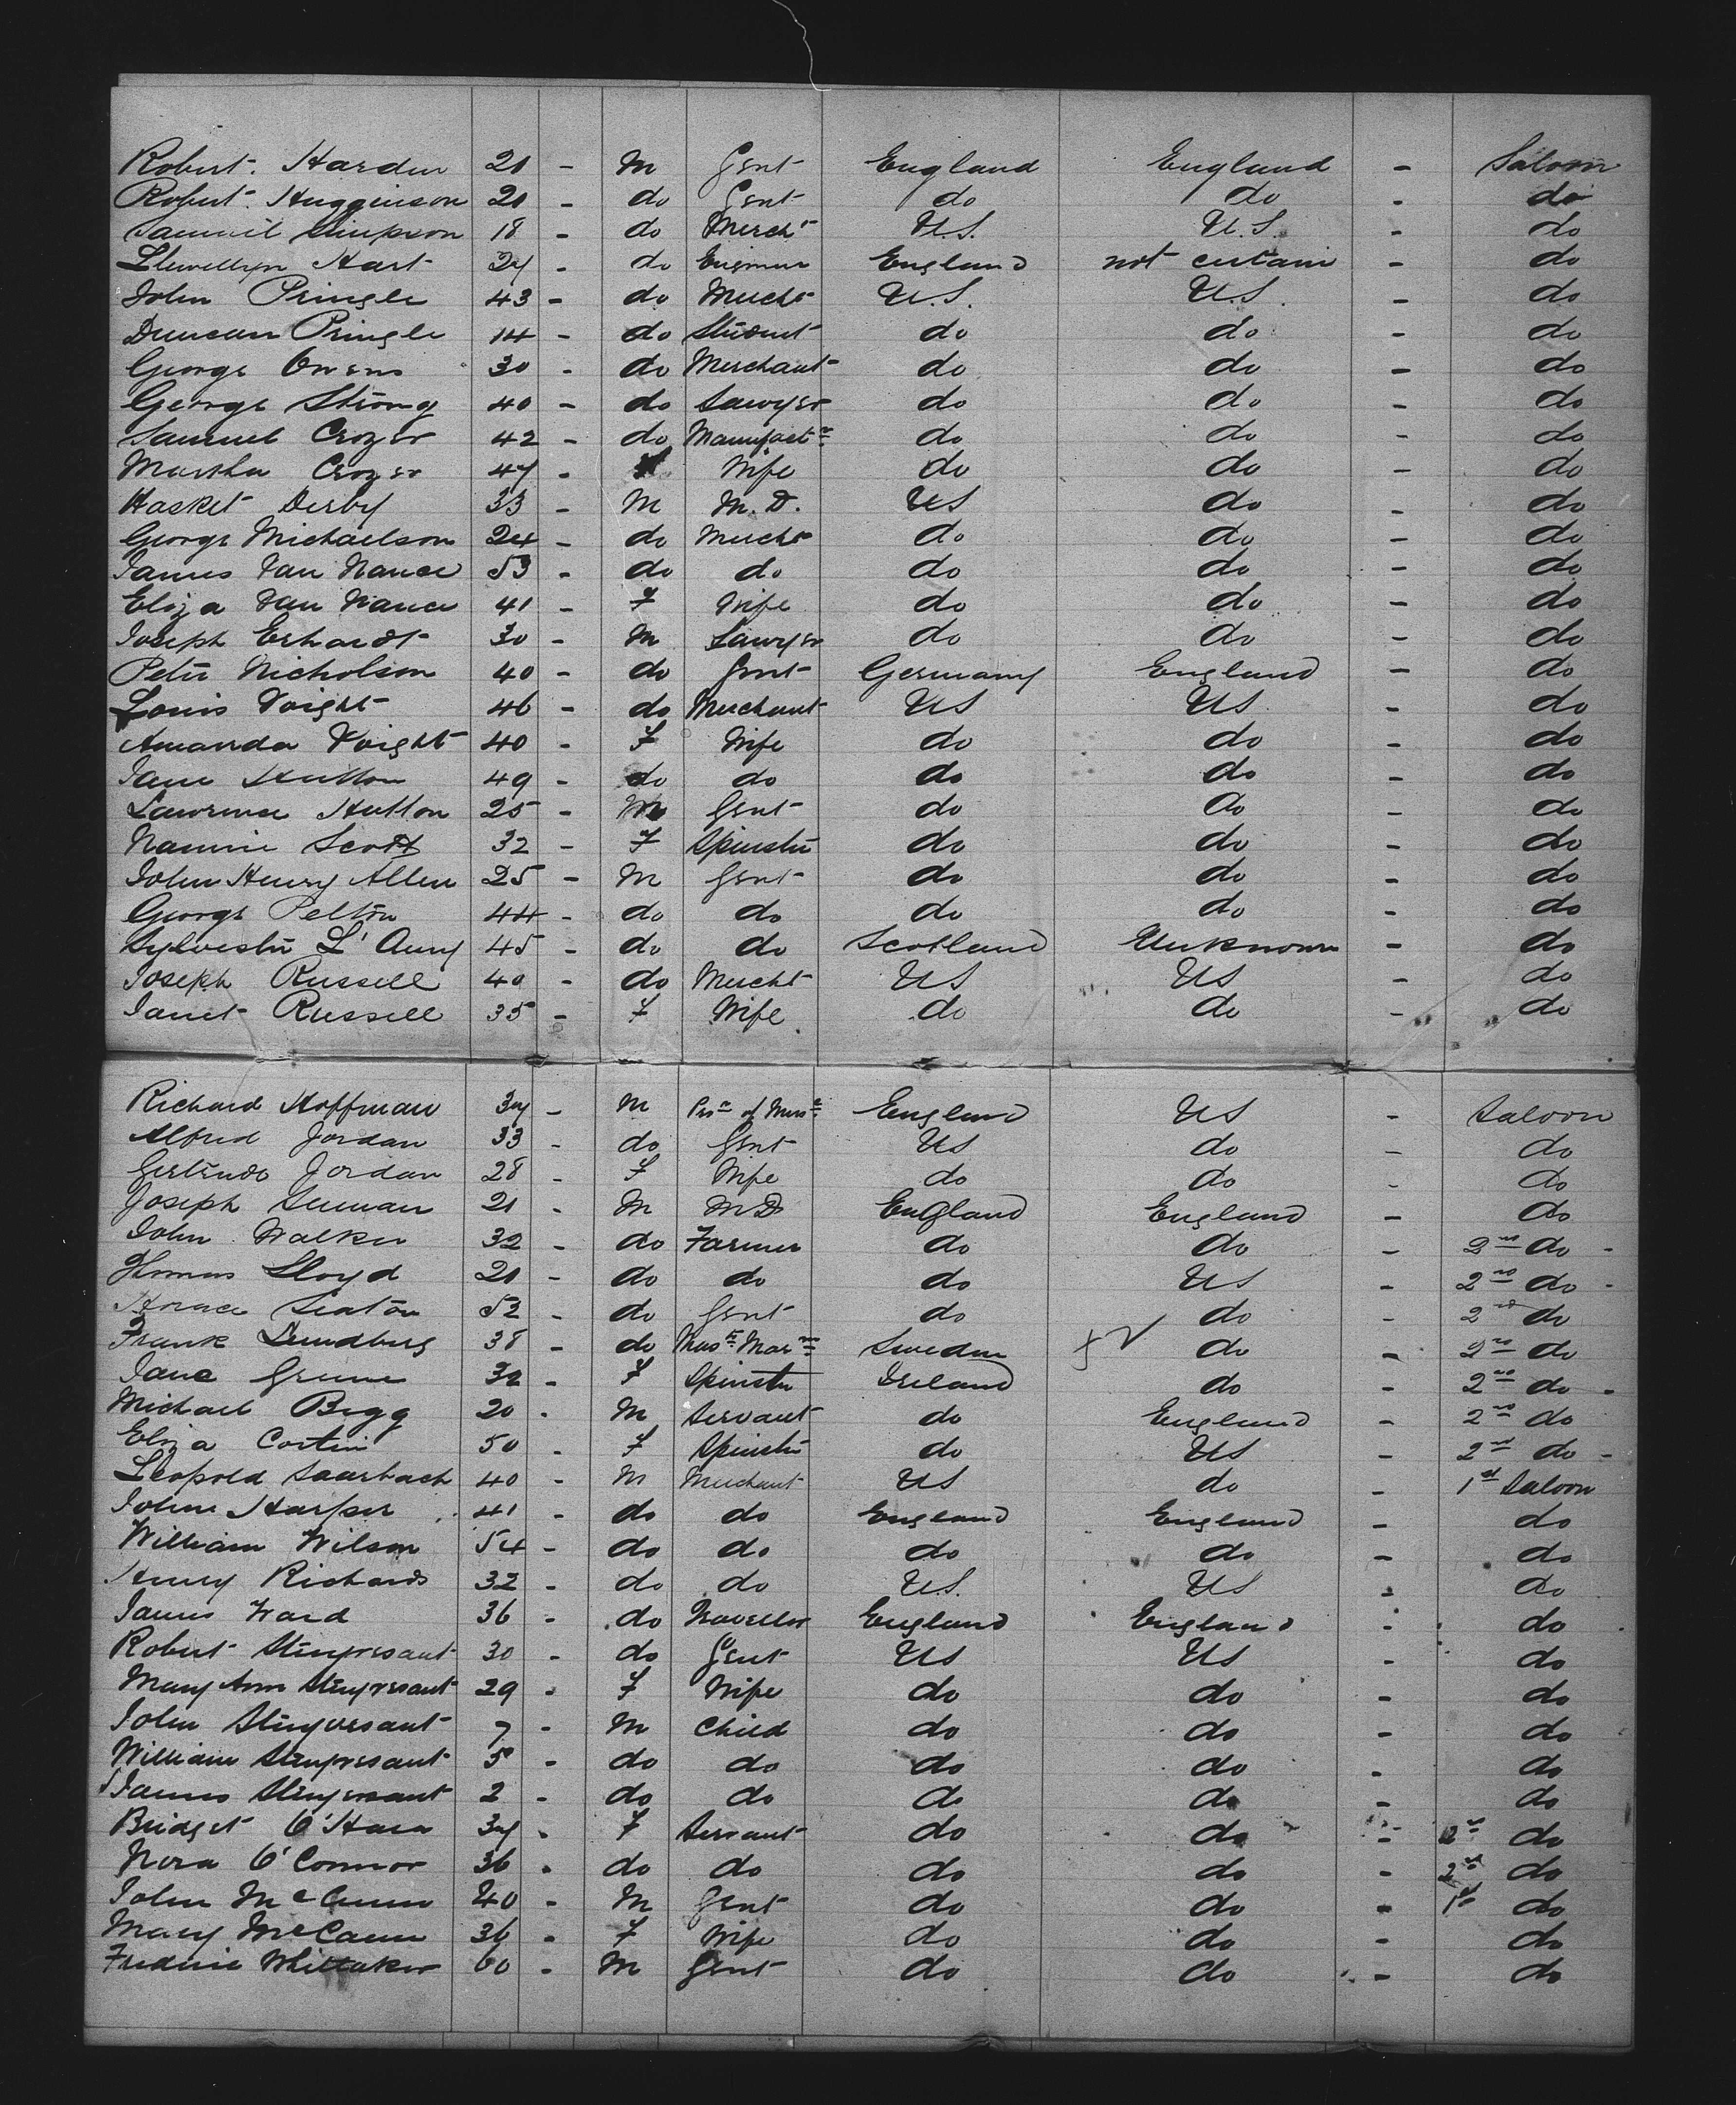 Robert Harden 21 - M Gent England England - Saloon
Robert Hugginson 21 - do Gent do do - do
Samuel Simpson 18 - do Mercht U.S. U.S. - do
Llewellyn Hart 27 - do England not certain - do
John Pringle 43 - do Mercht U.S. U.S. - do
Duncan Pringle 14 - do Student do do - do
George Owens 30 - do Merchant do do - do
George Strong 40 - do Lawyer do do - do
Samuel Crozer 42 - do Manufactr do do - do
Martha Crozer 47 - Wife do do - do
Hasket Derby 33 - M M.D. US do - do
George Michaelson 24 - do Mercht do do - do
James Van Nance 53 - do do do do - do
Eliza Van Nance 41 - F Wife do do - do
Joseph Erhardt 30 - M Lawyer do do - do
Peter Nicholson 40 - do Gent Germany England - do
Louis Voight 46 - do Merchant US US - do
Amanda Voight 40 - F Wife do do - do
Jane Hutton 49 - do do do do - do
Lawrence Hutton 25 - M Gent do do - do
Nannie Scott 32 - F Spinster do do - do
John Henry Allen 25 - M Gent do do - do
George Pelton 44 - do do do do - do
Sylvester L' Amy 45 - do do Scotland Unknown - do
Joseph Russell 40 - do Mercht US US - do
Janet Russell 35 - F Wife do do - do
Richard Hoffman 37 - M England US - Saloon
Alfred Jordan 33 - do Gent US do - do
Gertrude Jordan 28 - F Wife do do - do
Joseph 21 - M MD England England - do
John Walker 32 - do Farmer do do - 2nd do -
Thomas Lloyd 21 - do do do US - 2nd do -
Horace Seaton 52 - do Gent do do - 2nd do
Frank Lundberg 38 - do Masr Marnr Sweden do - 2nd do
Jane Greene 32 - F Spinster Ireland do - 2nd do -
Michael Begg 20 - M Servant do England - 2nd do
Eliza 50 - F Spinster do US - 2nd do -
Leopold Saarbach 40 - M Merchant US do - 1st Saloon
John Harper 41 - do do England England - do
William Wilson 54 - do do do do - do
Henry Richards 32 - do do U.S. US - do
James Ward 36 - do Traveller England England - do
Robert Stuyvesant 30 - do Gent US US - do
Mary Ann Stuyvesant 29 - F Wife do do - do
John Stuyvesant 7 - M Child do do - do
William Stuyvesant 5 - do do do do - do
James Stuyvesant 2 - do do do do - do
Bridget O'Hara 37 - F Servant do do - 2nd do
Nora O'Connor 36 - do do do do - 2nd do
John McCunn 40 - M Gent do do - 1st do
Mary McCunn 36 - F Wife do do - do
Frederic Whittaker 60 - M Gent do do - do